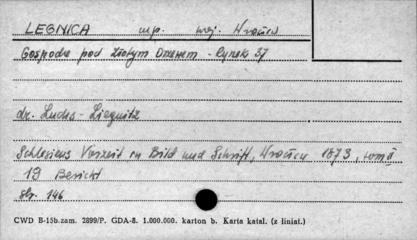 LEGNICA mp. woj. Wrocław
Gospoda pod Złotym Drzewem - Rynek 37
dr. Luchs - Liegnitz
Schlesiens Vorzeit in Bild und Schrift, Wrocław 1873, tom II
19 Bericht
str. 146
CWD B-15b.zam. 2899/P. GDA-8. 1.000.000. karton b. Karta katal. (z liniat.)